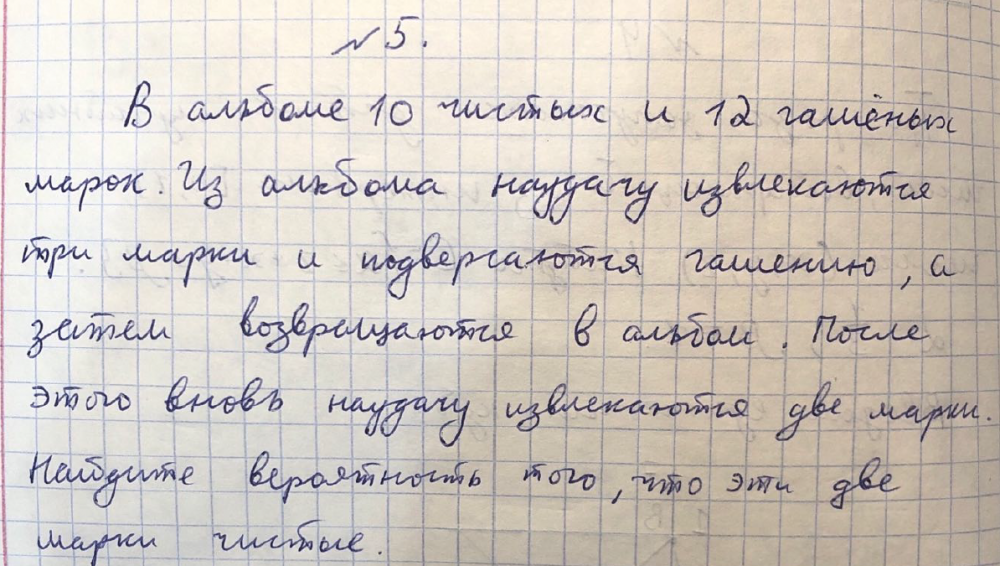 №5.
В альбоме 10 чистых и 12 гашёных
марок. Из альбома наудачу извлекаются
три марки и подвергаются гашению, а
затем возвращаются в альбом. После
этого вновь наудачу извлекаются две марки.
Найдите вероятность того, что эти две
марки чистые.